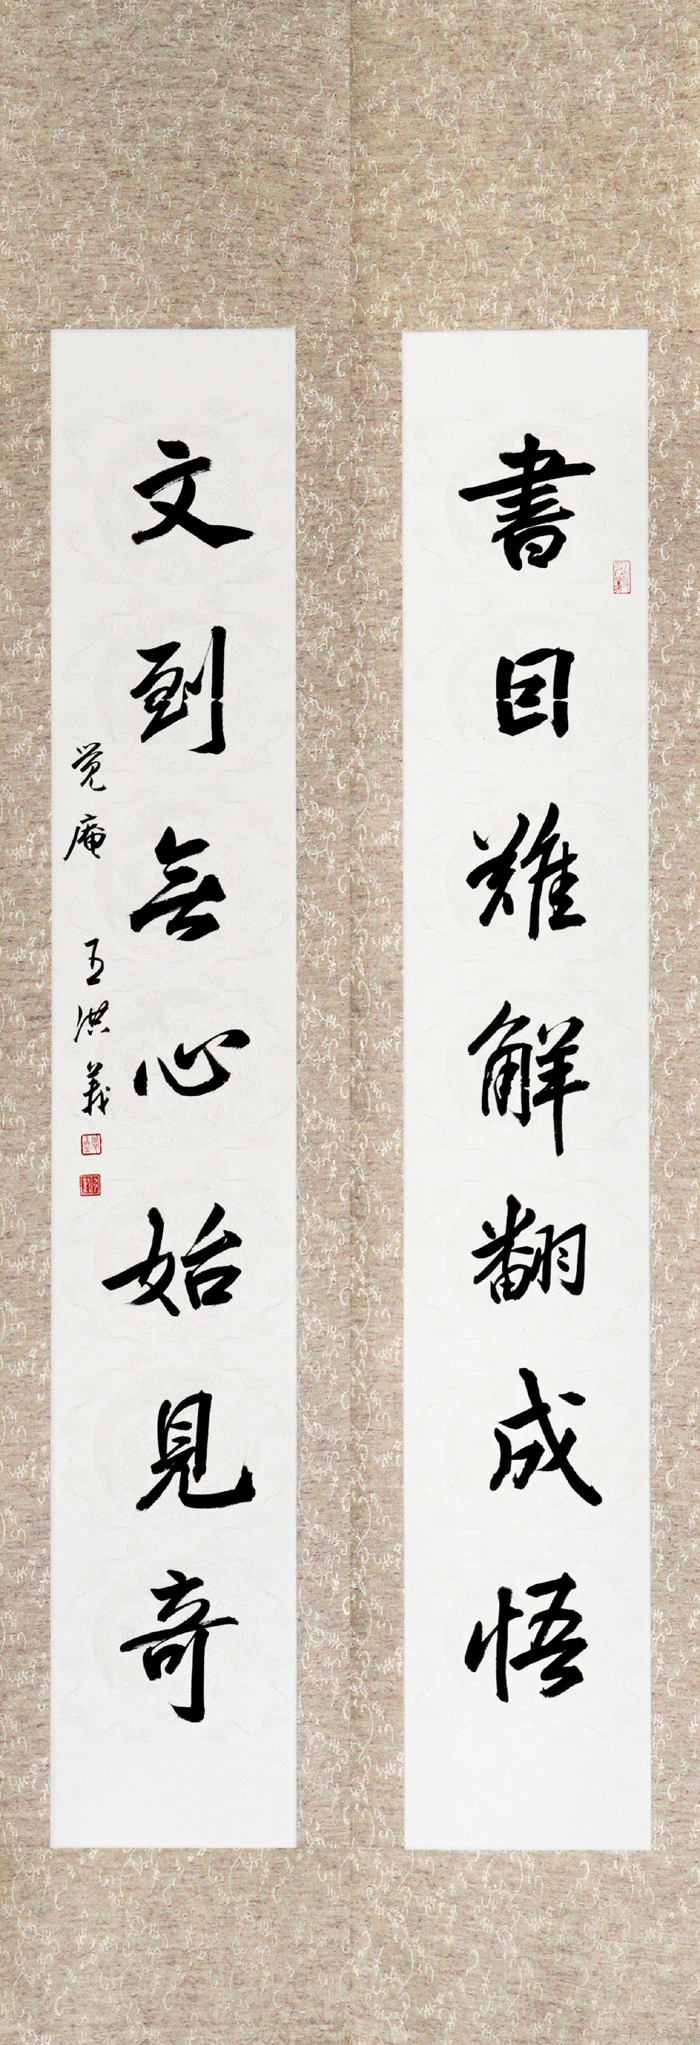 書因難解翻成悟
文到無心始見奇
觉庵 王洪義